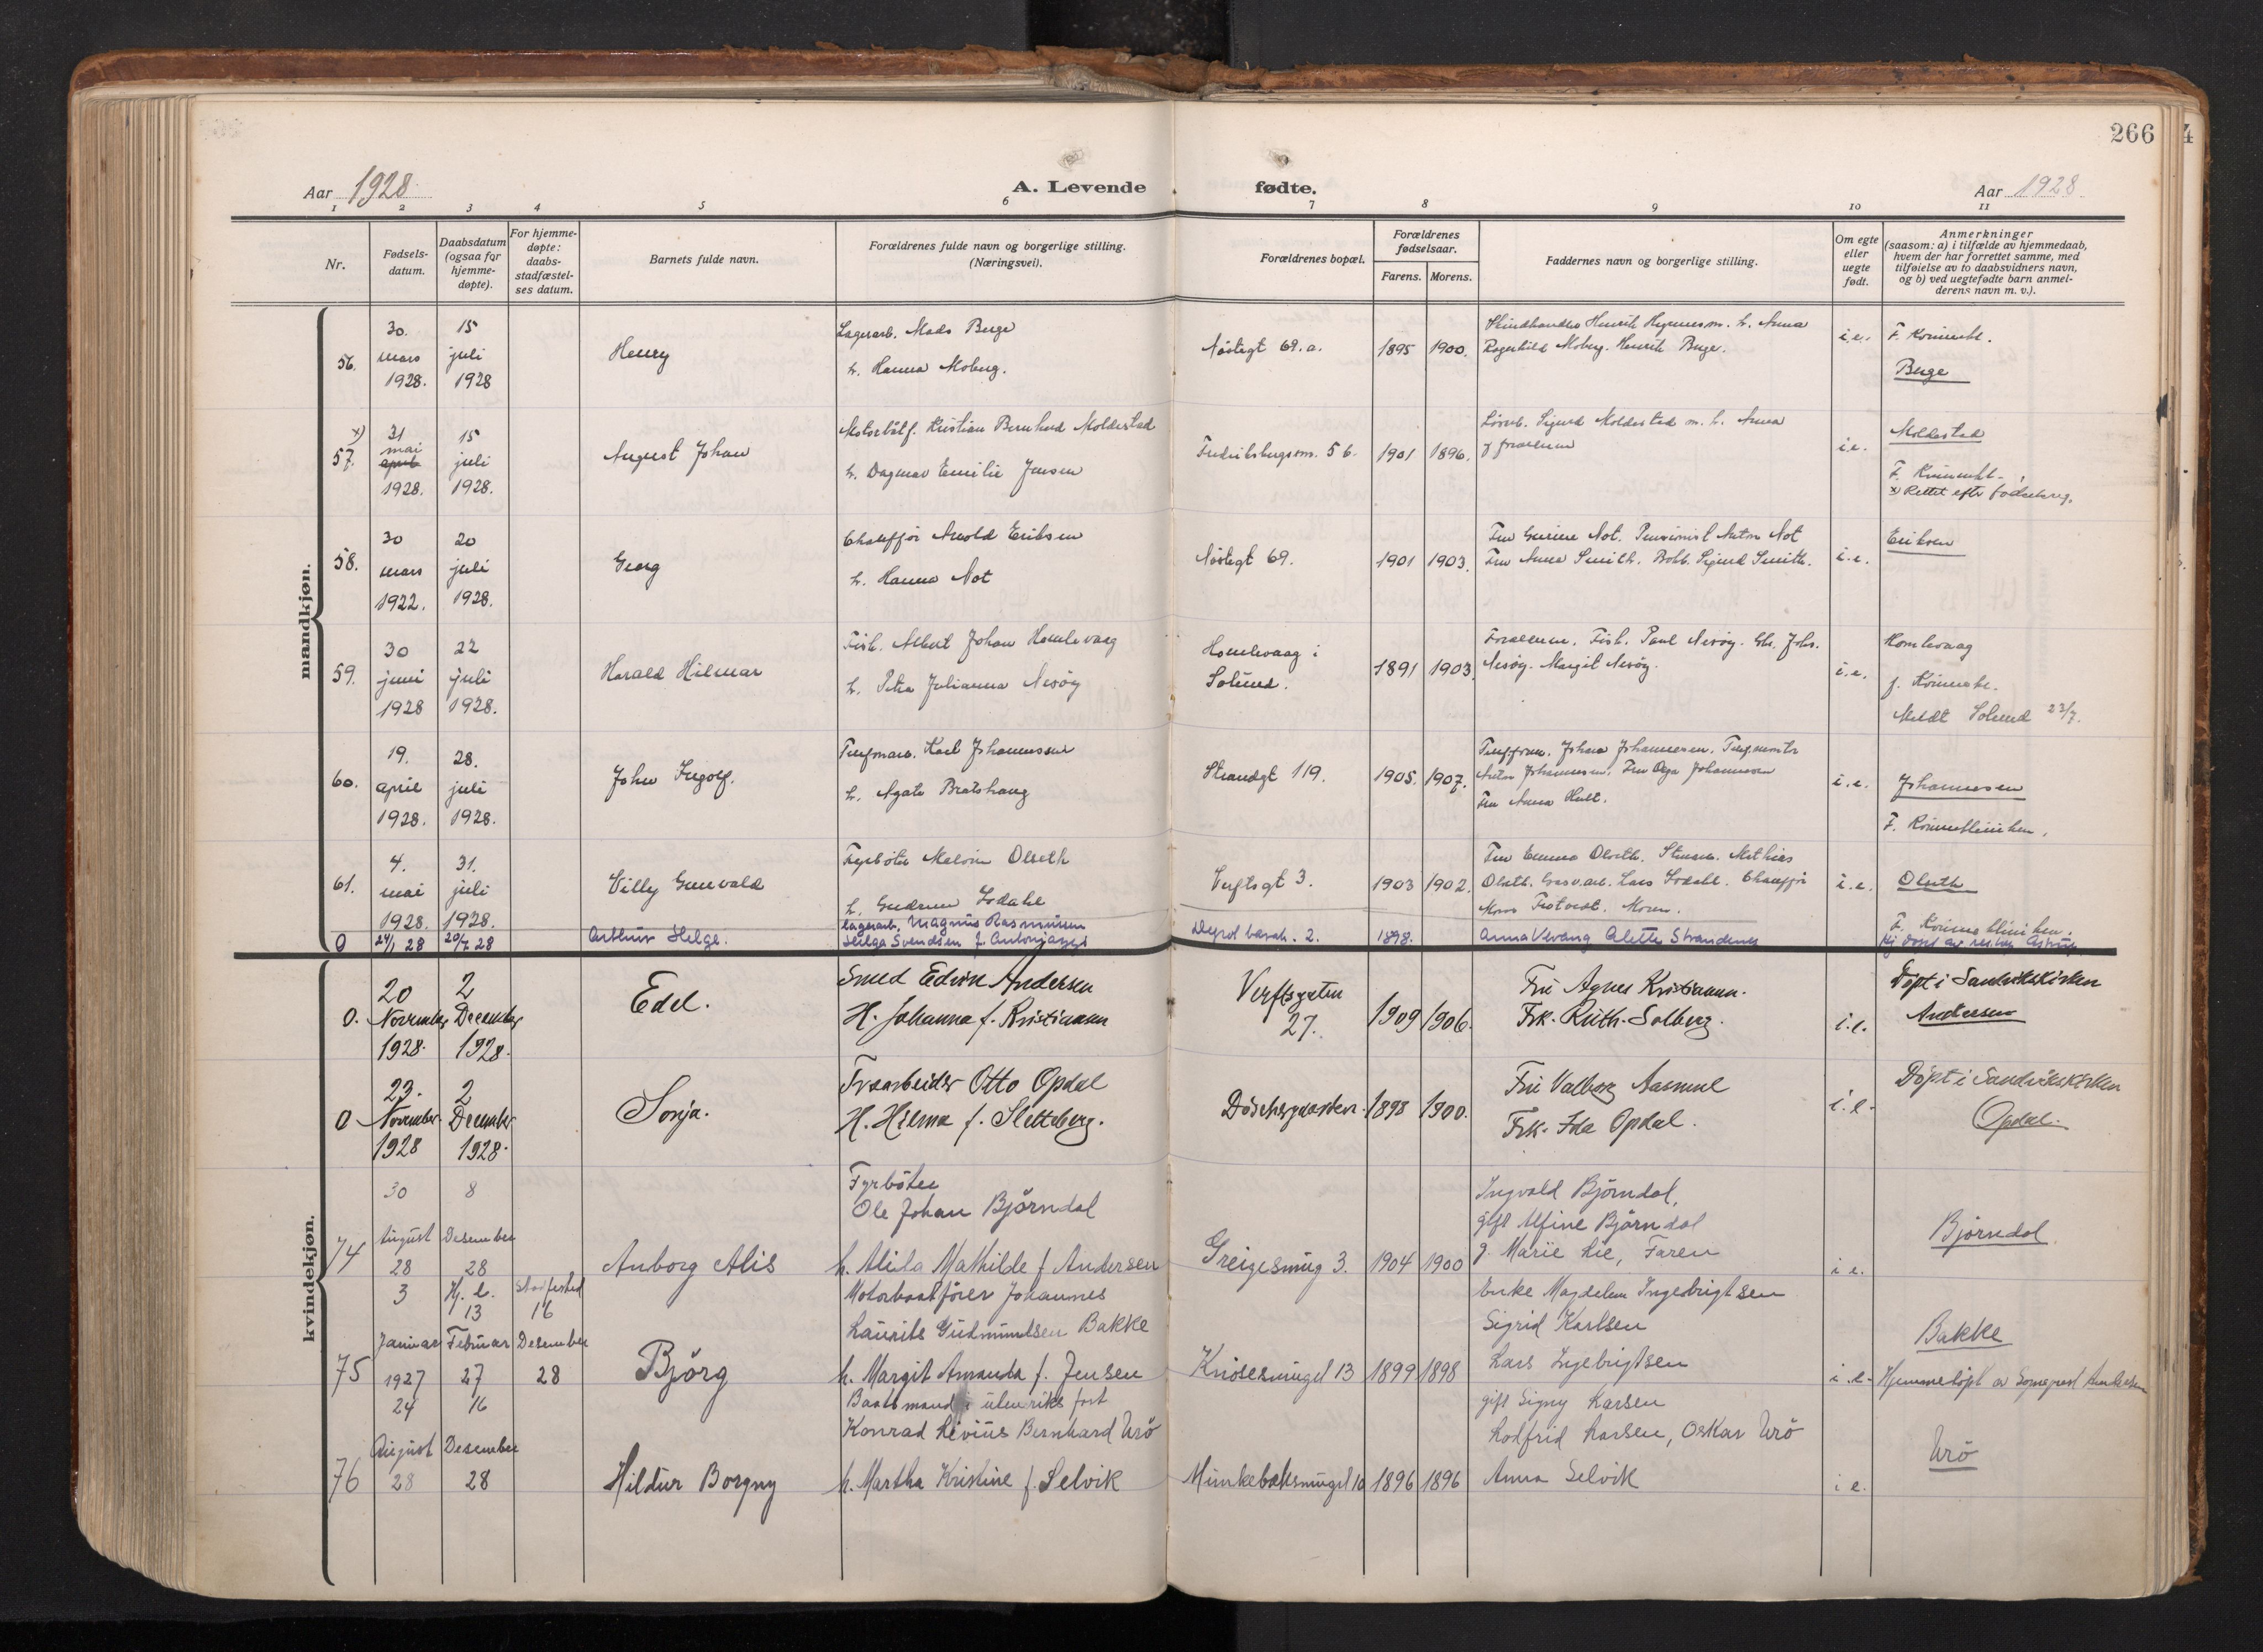 266
Aar 1928
A. Levende fødte.
Aar 1928
1 2 3 4 5 6 7 8 9 10 11
Nr.
Fødsels-
datum.
Daabsdatum
(ogsaa for
hjemme-
døpte).
For hjemme-
døpte:
daabs-
stadfæstel-
ses datum.
Barnets fulde navn.
Forældrenes fulde navn og borgerlige stilling.
(Næringsvei).
Forældrenes bopæl.
Forældrenes
fødselsaar.
Farens. Morens.
Faddernes navn og borgerlige stilling.
Om egte
eller
uegte
født.
Anmerkninger
(saasom: a) i tilfælde av hjemmedaab,
hvem der har forrettet samme, med
tilføielse av to daabsvidners navn,
og b) ved uegtefødte barn anmel-
derens navn m. v.).
mandkjøn.
56.
30.
mars
1928.
15
juli
1928
Henry
Lagerarb. Mads Berge
h. Hanna Moberg.
Nøstegt 69.a.
1895 1900.
Ragnhild Moberg. Henrik Berge.
i.e.
Berge
x)
57.
31
mai
april
1928.
15
juli
1928.
August Johan
Motorbåtf. Kristian Bernhard Moldestad
h. Dagmar Emilie Jensen
Fredriksbergsm. 56.
1901 1896.
Sigurd Moldestad m. h. Anna
i.e.
Moldestad
x) Rettet efter fødselsreg.
58.
30
mars
1922.
20
juli
1928.
Georg
Chauffør Arnold Eriksen
h. Hanna Not
Nøstegt 69.
1901 1903.
Fru Gurine Not. Pensionist Anton Not
Fru Anna Smith. Sigurd Smith.
i.e.
Eriksen
59.
30
juni
1928
22
juli
1928.
Harald Hilmar
Fisk. Albert Johan Homlevaag
h. Petra Julianna Nesøy
Homlevaag i
Solund.
1891 1903.
Forældrene. Fisk. Paul Nesøy.
Nesøy. Margit Nesøy.
i.e.
Homlevaag
Meldt Solund 23/7.
60.
19.
april
1928.
28.
juli
1928.
John Ingolf.
Karl Johannessen
h. Agate Bratshaug
Strandgt 119.
1905. 1907.
Johan Johannessen.
Anton Johannessen. Fru Olga Johannessen
Fru Anna Hult.
i.e.
Johannessen
F. Kvinneklinikken.
61.
4.
mai
1928.
31.
juli
1928.
Villy Gunvald
Fyrbøter Malvin Olseth
h. Gudrun Isdahl
Verftsgt 3.
1903 1902.
Fru Emma Olseth. Mathias
Olseth. Lars Isdahl. Chauffør
i.e.
Olseth
F. Kvinneklinikken.
0
24/1 28
20/7 28
Arthur Helge.
Lagerarb. Magnus Rasmussen
Helga Svendsen
2.
1898.
Anna Vevang Alette Strandenes
kvindekjøn.
0.
20
November
1928.
2
December
1928.
Edel.
Smed Edvin Andersen
H. Johanna f. Kristiansen
Verftsgaten
27.
1909 1906.
Fru Agnes Kristiansen.
Frk. Ruth Solberg.
i.e.
Döpt i Sandvikskirken
Andersen
0
23.
November
1928
2
December
1928.
Sonja.
Otto Opdal
H. Hilma f. Sletteberg.
1898 1900.
Fru Valborg Aasmul
Frk. Ida Opdal.
i.e.
Döpt i Sandvikskirken
Opdal.
74
30
August
28
8
Desember
28
Anborg Alis
Fyrböter
Ole Johan Björndal
h. Alida Mathilde f Andersen
Greigesmug 3.
1904 1900
Ingvald Björndal,
gift Alfine Björndal
g. Marie Lie, Faren
i e.
Björndal
75
3
Januar
1927
Hj. d.
13
Februar
27
Stadfested
16
Desember
28
Björg
Motorbaatförer Johannes
Laurits Gudmundsen Bakke
h. Margit Amanda f. Jensen
Knösesmuget 13
1899 1898
Enke Magdalena Ingebrigtsen
Sigrid Karlsen
Lars Ingebrigtsen
i.e.
Bakke
Hjemmedöpt av Sogneprest Andersen
76
24
August
28
16
Desember
28
Hildur Borgny
Baatsmand i utenriks fart
Konrad Livius Bernhard Urö
h. Martha Kristine f. Selvik
Munkebæksmuget 10
1896 1896
gift Signy Karsen
Lodfrid Larsen, Oskar Urö
Anna Selvik
i e.
Urö